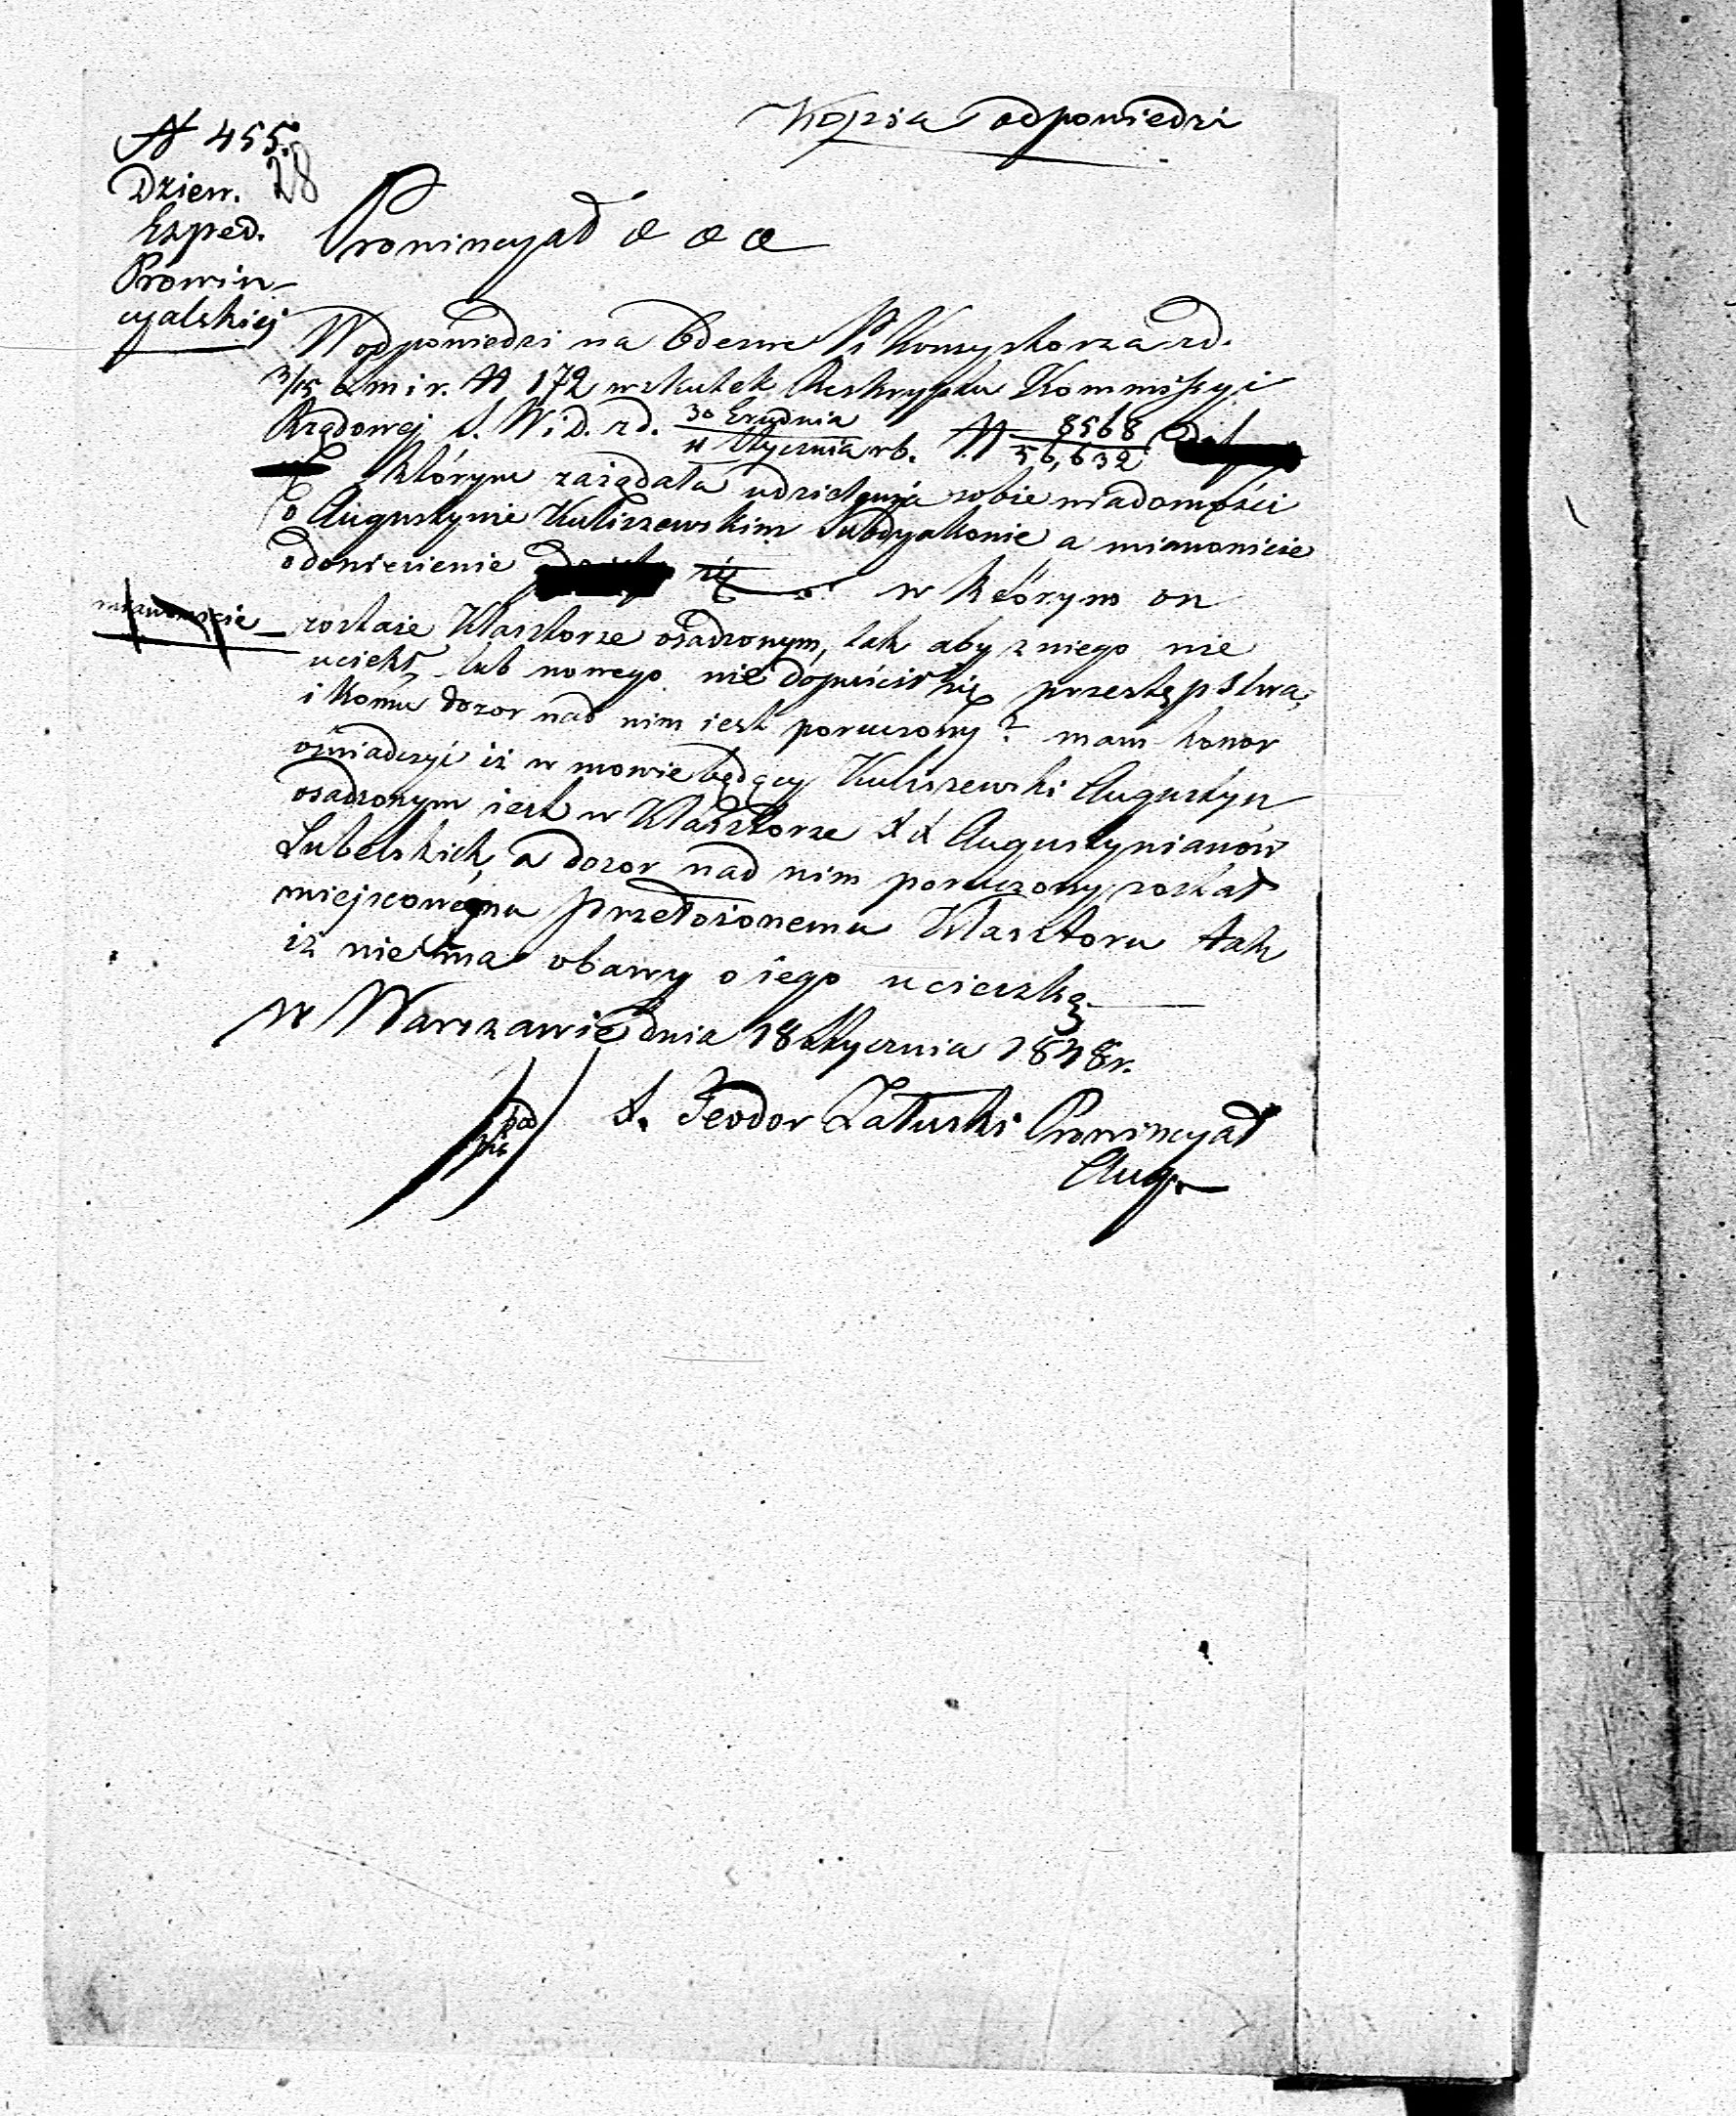 Kopia odpowiedzi
N 455.
28
Dzien.
Exped.
Prowin-
cyalskiej
Prowincyał & & &
W odpowiedzi na Odezwę P. Konsystorza z d.
3/15 b m i r. N 172 wskutek Reskryptu Kommissyi
Rządowej S. W i D. z d. 30 Grudnia / 11 Stycznia r b. N 8568 / 56,632
którym zażądała udzielenia sobie wiadomości
o Augustynie Kuliszewskim Subdyakonie a mianowicie
o doniesienie w którym on
mianowicie
zostaie Klasztorze osadzonym, tak aby z niego nie
uciekł, lub nowego nie dopuścił się przestępstwa,
i komu dozor nad nim iest poruczony? mam honor
oświadczyć iż w mowie będący Kuliszewski Augustyn
osadzonym iest w Klasztorze XX Augustynianów
Lubelskich, a dozor nad nim poruczony został
miejscowemu przełożonemu Klasztoru tak
iż nie ma obawy o iego ucieczkę
w Warszawie dnia 18 Stycznia 1848 r.
X. Teodor Załuski Prowincyał
Aug.